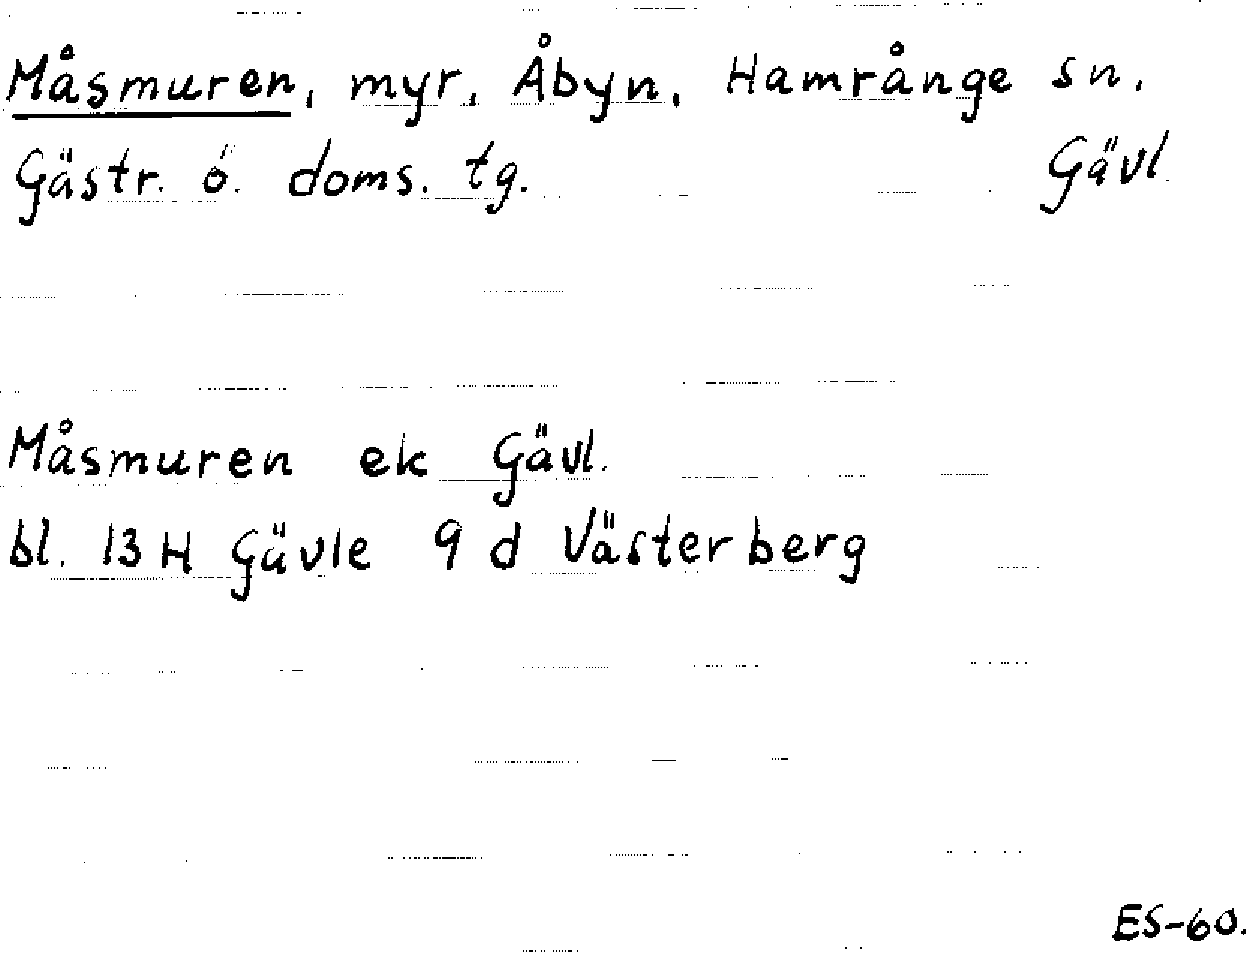 Måsmuren, myr, Åbyn, Hamrånge sn.
Gästr. ö. doms. tg. Gävl
Måsmuren ek Gävl.
bl. 13 H Gävle 9 d Västerberg
ES-60.